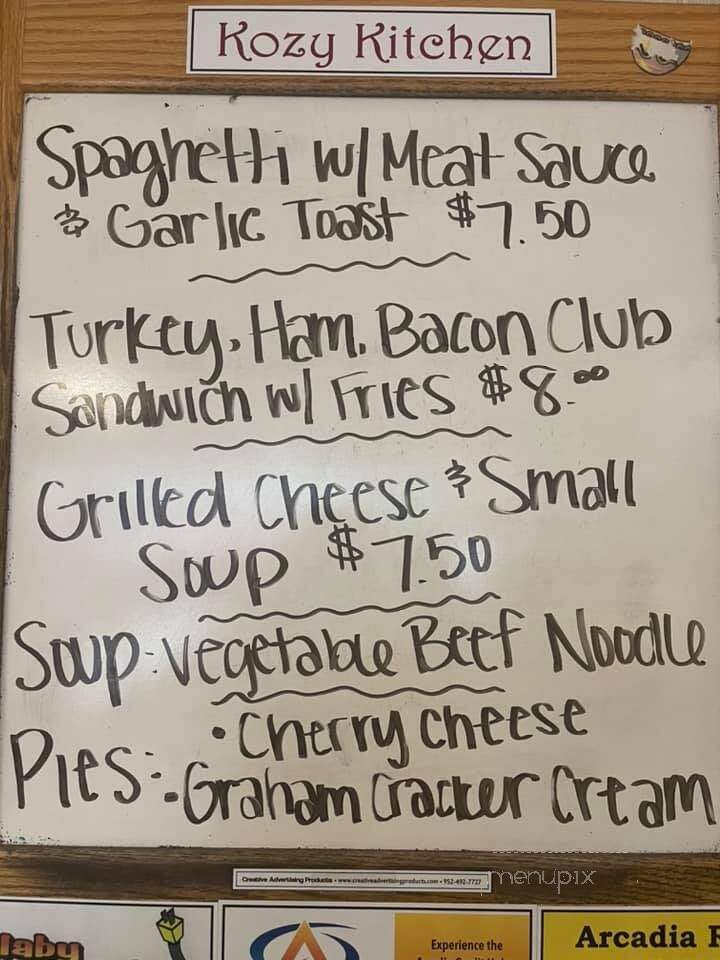 Kozy Kitchen
Spaghetti w/ Meat Sauce
& Garlic Toast $7.50
Turkey, Ham, Bacon Club
Sandwich w/ Fries $8.00
Grilled Cheese & Small
Soup $7.50
Soup: Vegetable Beef Noodle
Pies: • Cherry Cheese
• Graham Cracker Cream
Creative Advertising Products • www.creativeadvertisingproducts.com • 952-492-7727
menupix
Experience the
Arcadia